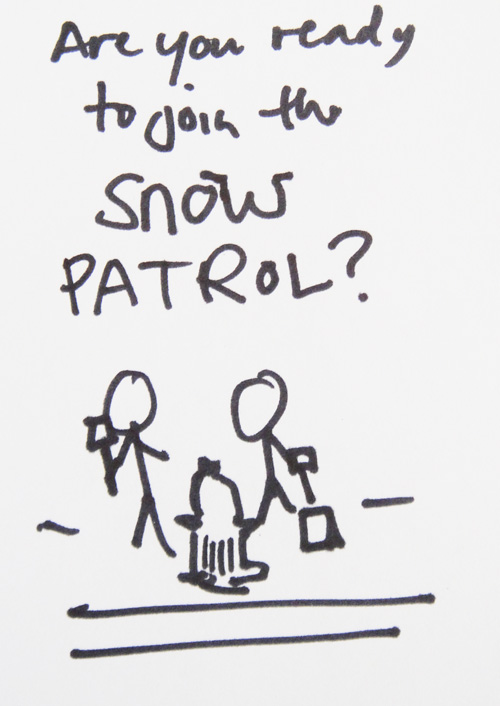 Are you ready
to join the
SNOW
PATROL?